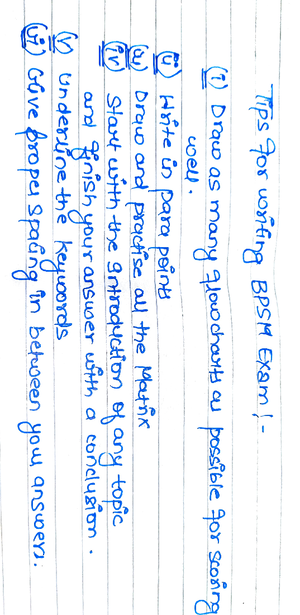 Tips for writing BPSM Exam!-
(i) Draw as many flowcharts as possible for scoring
well.
(ii) Write in para points
(iii) Draw and practise all the Matrix
(iv) Start with the Introduction of any topic
and finish your answer with a conclusion.
(v) underline the keywords
(vi) Give proper spacing in between your answers.